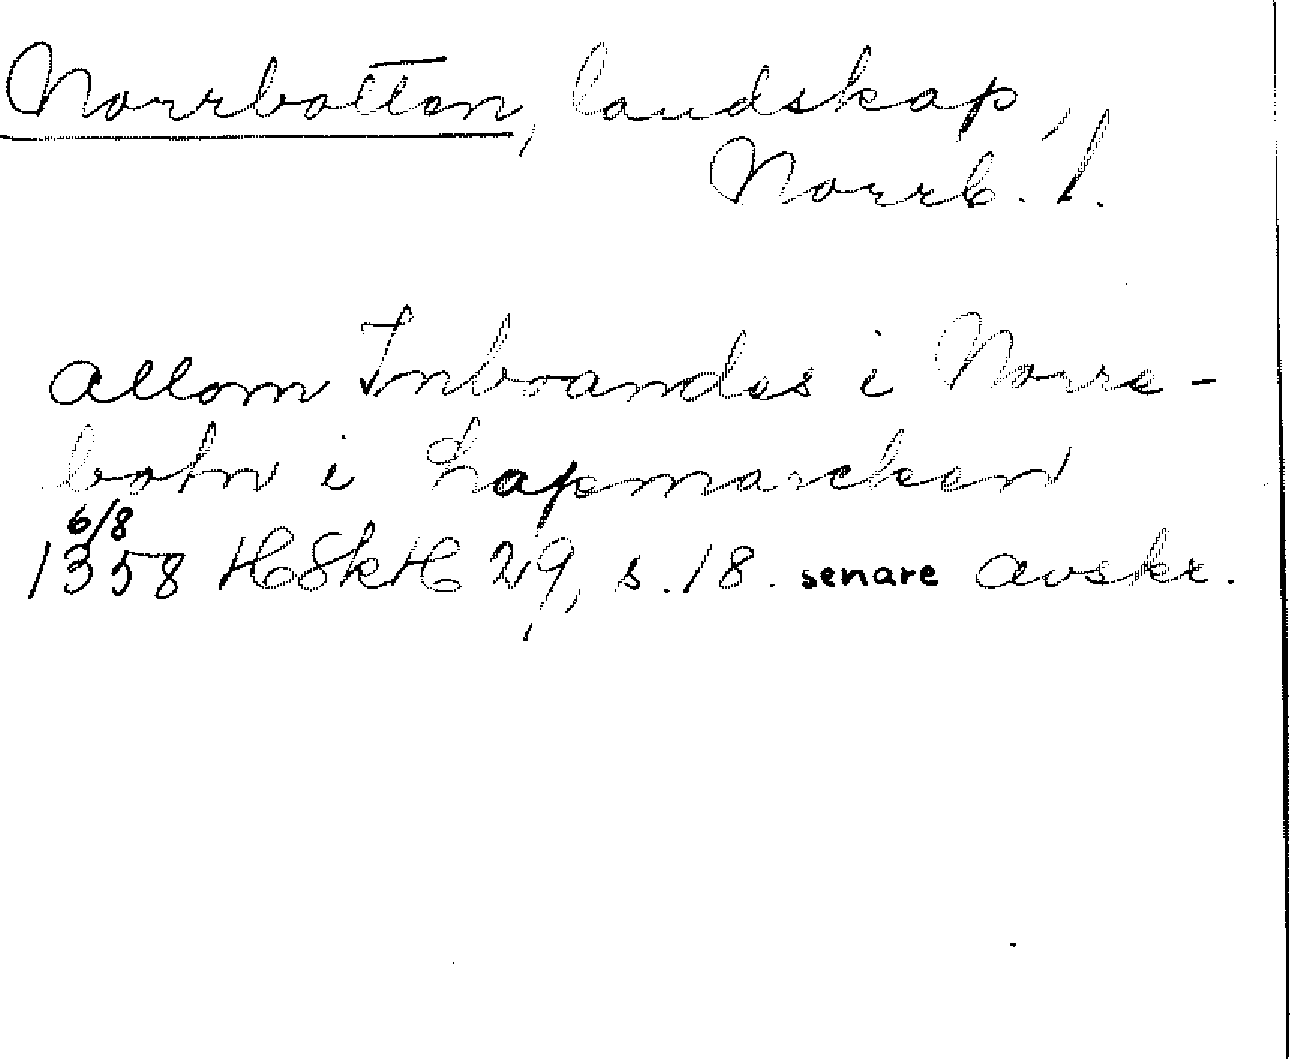 Norrbotten, landskap,
Norrb. l.
allom Inboandes i Norre-
botn i Lapmarcken
6/8
1358 HSkH 29, s. 18. senare avskr.